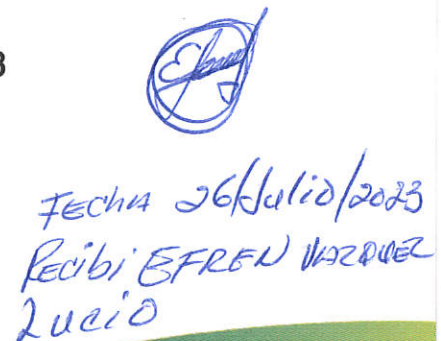 3
FECHA 26/Julio/2023
Recibi EFREN VAZQUEZ
LUCIO